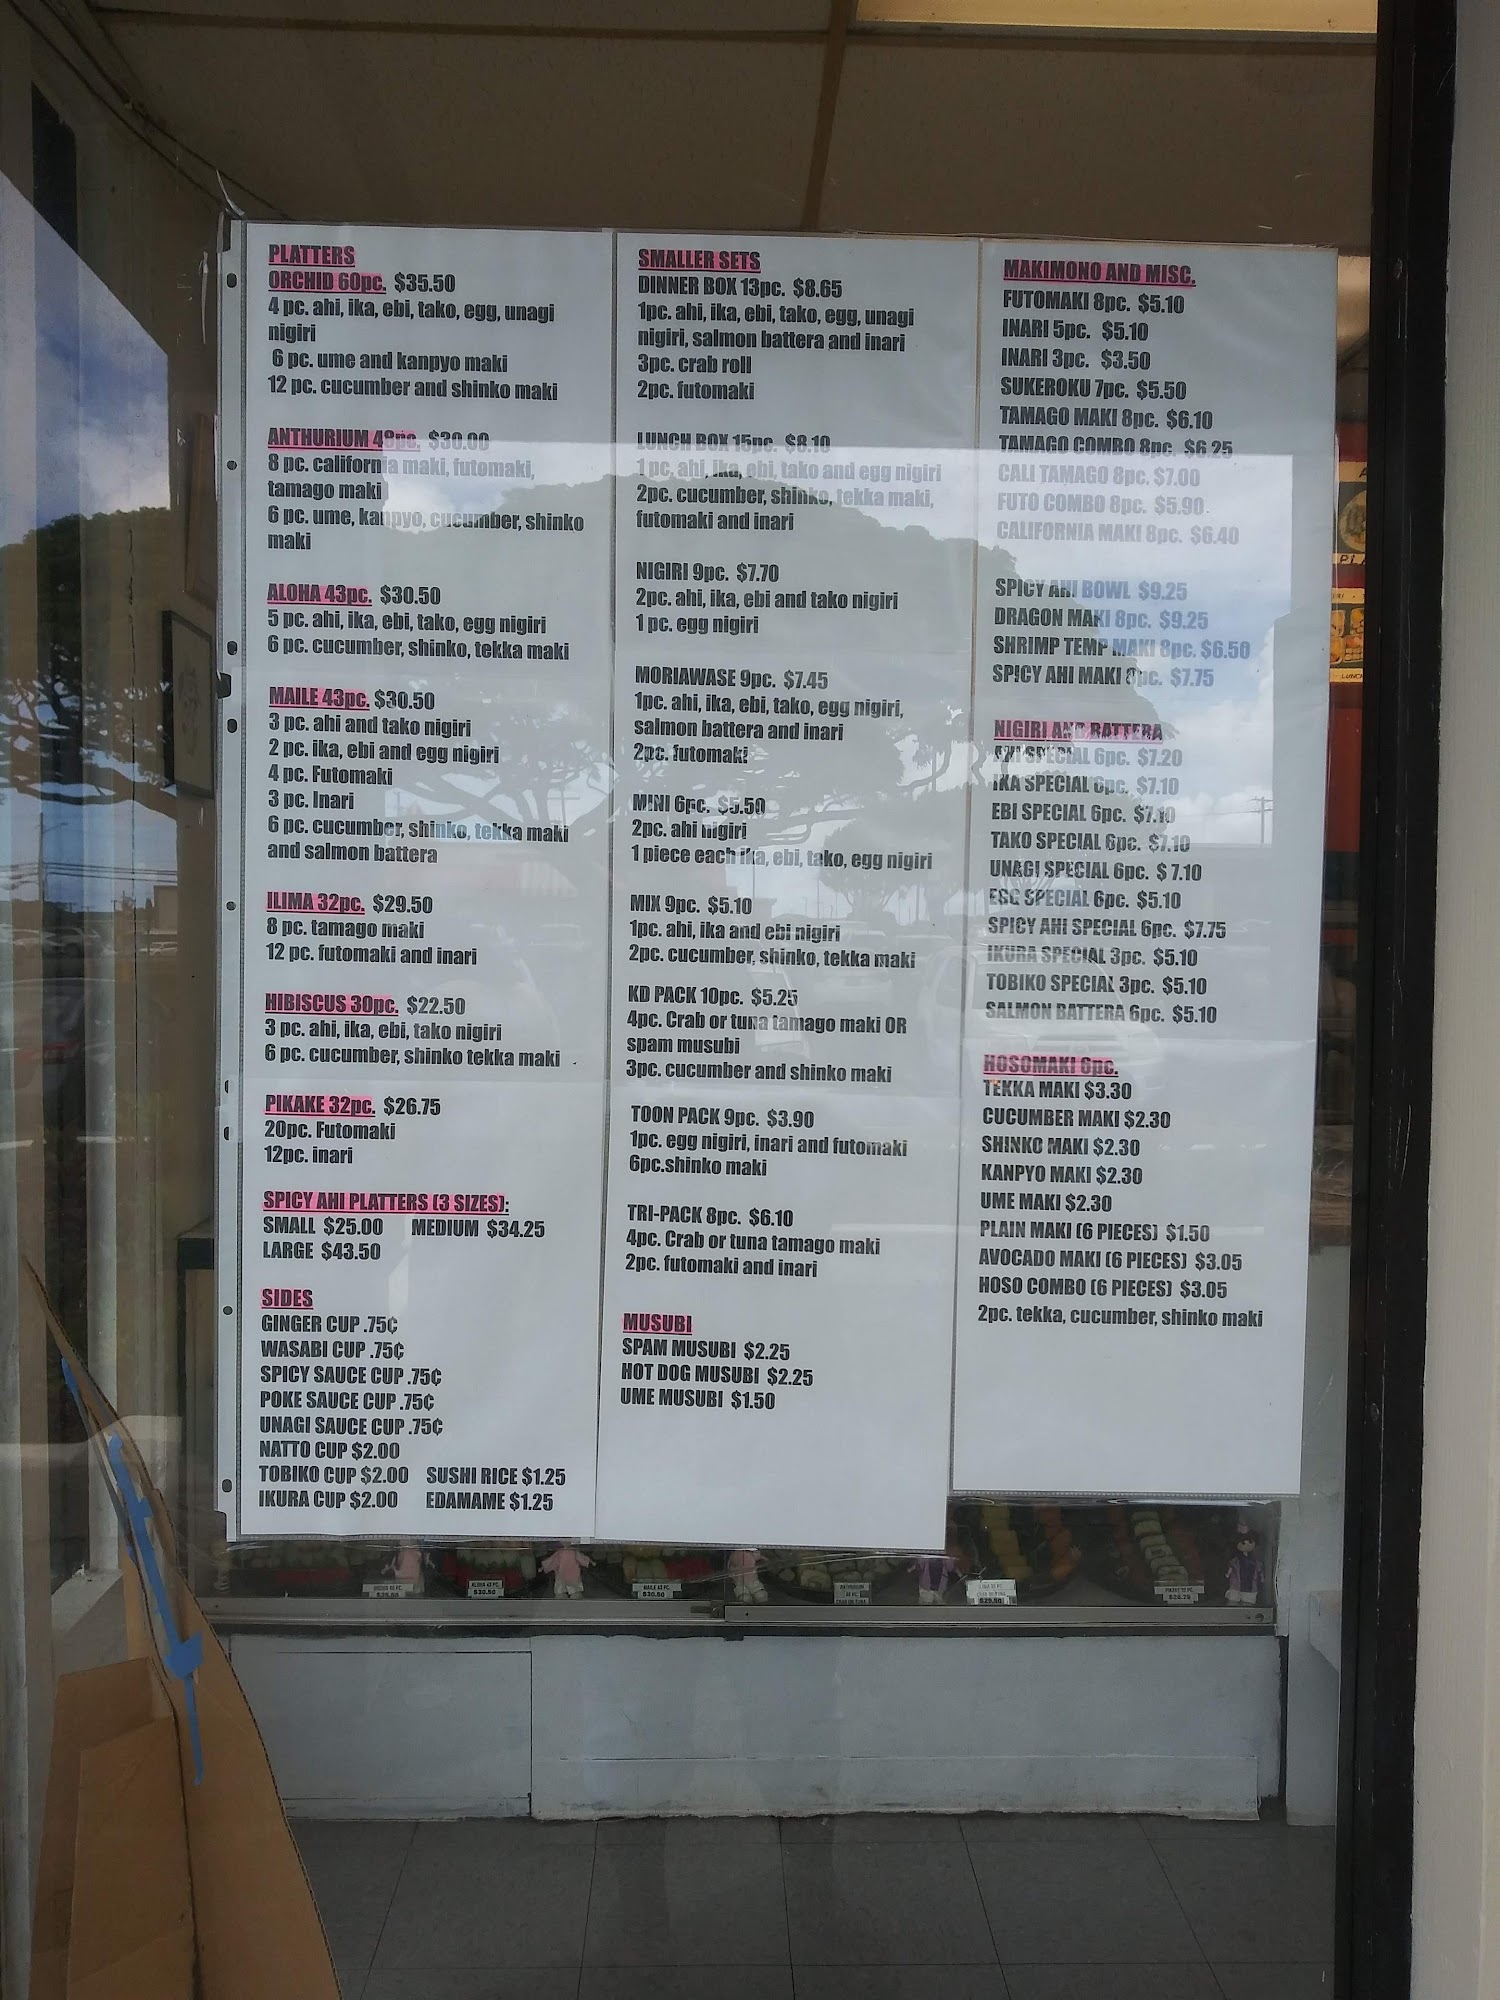 PLATTERS
ORCHID 60pc. $35.50
4 pc. ahi, ika, ebi, tako, egg, unagi
nigiri
6 pc. ume and kanpyo maki
12 pc. cucumber and shinko maki
ANTHURIUM 48pc. $30.00
8 pc. california maki, futomaki,
tamago maki
6 pc. ume, kanpyo, cucumber, shinko
maki
ALOHA 43pc. $30.50
5 pc. ahi, ika, ebi, tako, egg nigiri
6 pc. cucumber, shinko, tekka maki
MAILE 43pc. $30.50
3 pc. ahi and tako nigiri
2 pc. ika, ebi and egg nigiri
4 pc. Futomaki
3 pc. Inari
6 pc. cucumber, shinko, tekka maki
and salmon battera
ILIMA 32pc. $29.50
8 pc. tamago maki
12 pc. futomaki and inari
HIBISCUS 30pc. $22.50
3 pc. ahi, ika, ebi, tako nigiri
6 pc. cucumber, shinko tekka maki
PIKAKE 32pc. $26.75
20pc. Futomaki
12pc. inari
SPICY AHI PLATTERS (3 SIZES):
SMALL $25.00 MEDIUM $34.25
LARGE $43.50
SIDES
GINGER CUP .75¢
WASABI CUP .75¢
SPICY SAUCE CUP .75¢
POKE SAUCE CUP .75¢
UNAGI SAUCE CUP .75¢
NATTO CUP $2.00
TOBIKO CUP $2.00 SUSHI RICE $1.25
IKURA CUP $2.00 EDAMAME $1.25
SMALLER SETS
DINNER BOX 13pc. $8.65
1pc. ahi, ika, ebi, tako, egg, unagi
nigiri, salmon battera and inari
3pc. crab roll
2pc. futomaki
LUNCH BOX 15pc. $8.10
1 pc, ahi, ika, ebi, tako and egg nigiri
2pc. cucumber, shinko, tekka maki,
futomaki and inari
NIGIRI 9pc. $7.70
2pc. ahi, ika, ebi and tako nigiri
1 pc. egg nigiri
MORIAWASE 9pc. $7.45
1pc. ahi, ika, ebi, tako, egg nigiri,
salmon battera and inari
2pc. futomaki
MINI 6pc. $5.50
2pc. ahi nigiri
1 piece each ika, ebi, tako, egg nigiri
MIX 9pc. $5.10
1pc. ahi, ika and ebi nigiri
2pc. cucumber, shinko, tekka maki
KD PACK 10pc. $5.25
4pc. Crab or tuna tamago maki OR
spam musubi
3pc. cucumber and shinko maki
TOON PACK 9pc. $3.90
1pc. egg nigiri, inari and futomaki
6pc.shinko maki
TRI-PACK 8pc. $6.10
4pc. Crab or tuna tamago maki
2pc. futomaki and inari
MUSUBI
SPAM MUSUBI $2.25
HOT DOG MUSUBI $2.25
UME MUSUBI $1.50
MAKIMONO AND MISC.
FUTOMAKI 8pc. $5.10
INARI 5pc. $5.10
INARI 3pc. $3.50
SUKEROKU 7pc. $5.50
TAMAGO MAKI 8pc. $6.10
TAMAGO COMBO 8pc. $6.25
CALI TAMAGO 8pc. $7.00
FUTO COMBO 8pc. $5.90
CALIFORNIA MAKI 8pc. $6.40
SPICY AHI BOWL $9.25
DRAGON MAKI 8pc. $9.25
SHRIMP TEMP MAKI 8pc. $6.50
SPICY AHI MAKI 8pc. $7.75
NIGIRI AND BATTERA
AHI SPECIAL 6pc. $7.20
IKA SPECIAL 6pc. $7.10
EBI SPECIAL 6pc. $7.10
TAKO SPECIAL 6pc. $7.10
UNAGI SPECIAL 6pc. $ 7.10
EGG SPECIAL 6pc. $5.10
SPICY AHI SPECIAL 6pc. $7.75
IKURA SPECIAL 3pc. $5.10
TOBIKO SPECIAL 3pc. $5.10
SALMON BATTERA 6pc. $5.10
HOSOMAKI 6pc.
TEKKA MAKI $3.30
CUCUMBER MAKI $2.30
SHINKO MAKI $2.30
KANPYO MAKI $2.30
UME MAKI $2.30
PLAIN MAKI (6 PIECES) $1.50
AVOCADO MAKI (6 PIECES) $3.05
HOSO COMBO (6 PIECES) $3.05
2pc. tekka, cucumber, shinko maki
ALOHA 43 PC.
$30.50
MAILE 43 PC.
$30.50
$29.50